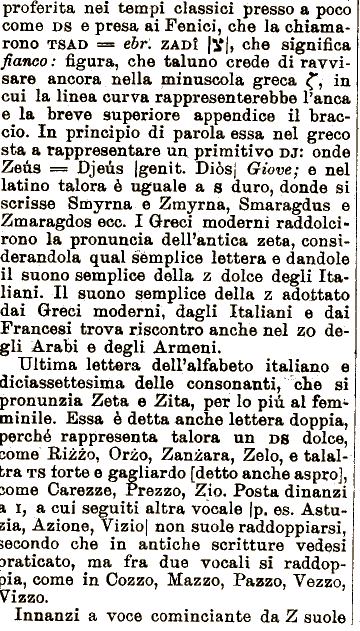 proferita nei tempi classici presso a poco
come DS e presa ai Fenici, che la chiama-
rono TSAD = ebr. ZADÎ |צ|, che significa
fianco: figura, che taluno crede di ravvi-
sare ancora nella minuscola greca ζ, in
cui la linea curva rappresenterebbe l'anca
e la breve superiore appendice il brac-
cio. In principio di parola essa nel greco
sta a rappresentare un primitivo DJ: onde
Zeús = Djeús |genit. Diòs| Giove; e nel
latino talora è uguale a S duro, donde si
scrisse Smyrna e Zmyrna, Smaragdus e
Zmaragdos ecc. I Greci moderni raddolci-
rono la pronuncia dell'antica zeta, consi-
derandola qual semplice lettera e dandole
il suono semplice della Z dolce degli Ita-
liani. Il suono semplice della Z adottato
dai Greci moderni, dagli Italiani e dai
Francesi trova riscontro anche nel ZO de-
gli Arabi e degli Armeni.
Ultima lettera dell'alfabeto italiano e
diciassettesima delle consonanti, che si
pronunzia Zeta e Zita, per lo piú al fem-
minile. Essa è detta anche lettera doppia,
perché rappresenta talora un DS dolce,
come Riżżo, Orżo, Zanżara, Zelo, e talal-
tra TS forte e gagliardo [detto anche aspro],
come Carezze, Prezzo, Zio. Posta dinanzi
a I, a cui seguiti altra vocale |p. es. Astu-
zia, Azione, Vizio| non suole raddoppiarsi,
secondo che in antiche scritture vedesi
praticato, ma fra due vocali si raddop-
pia, come in Cozzo, Mazzo, Pazzo, Vezzo,
Vizzo.
Innanzi a voce cominciante da Z suole